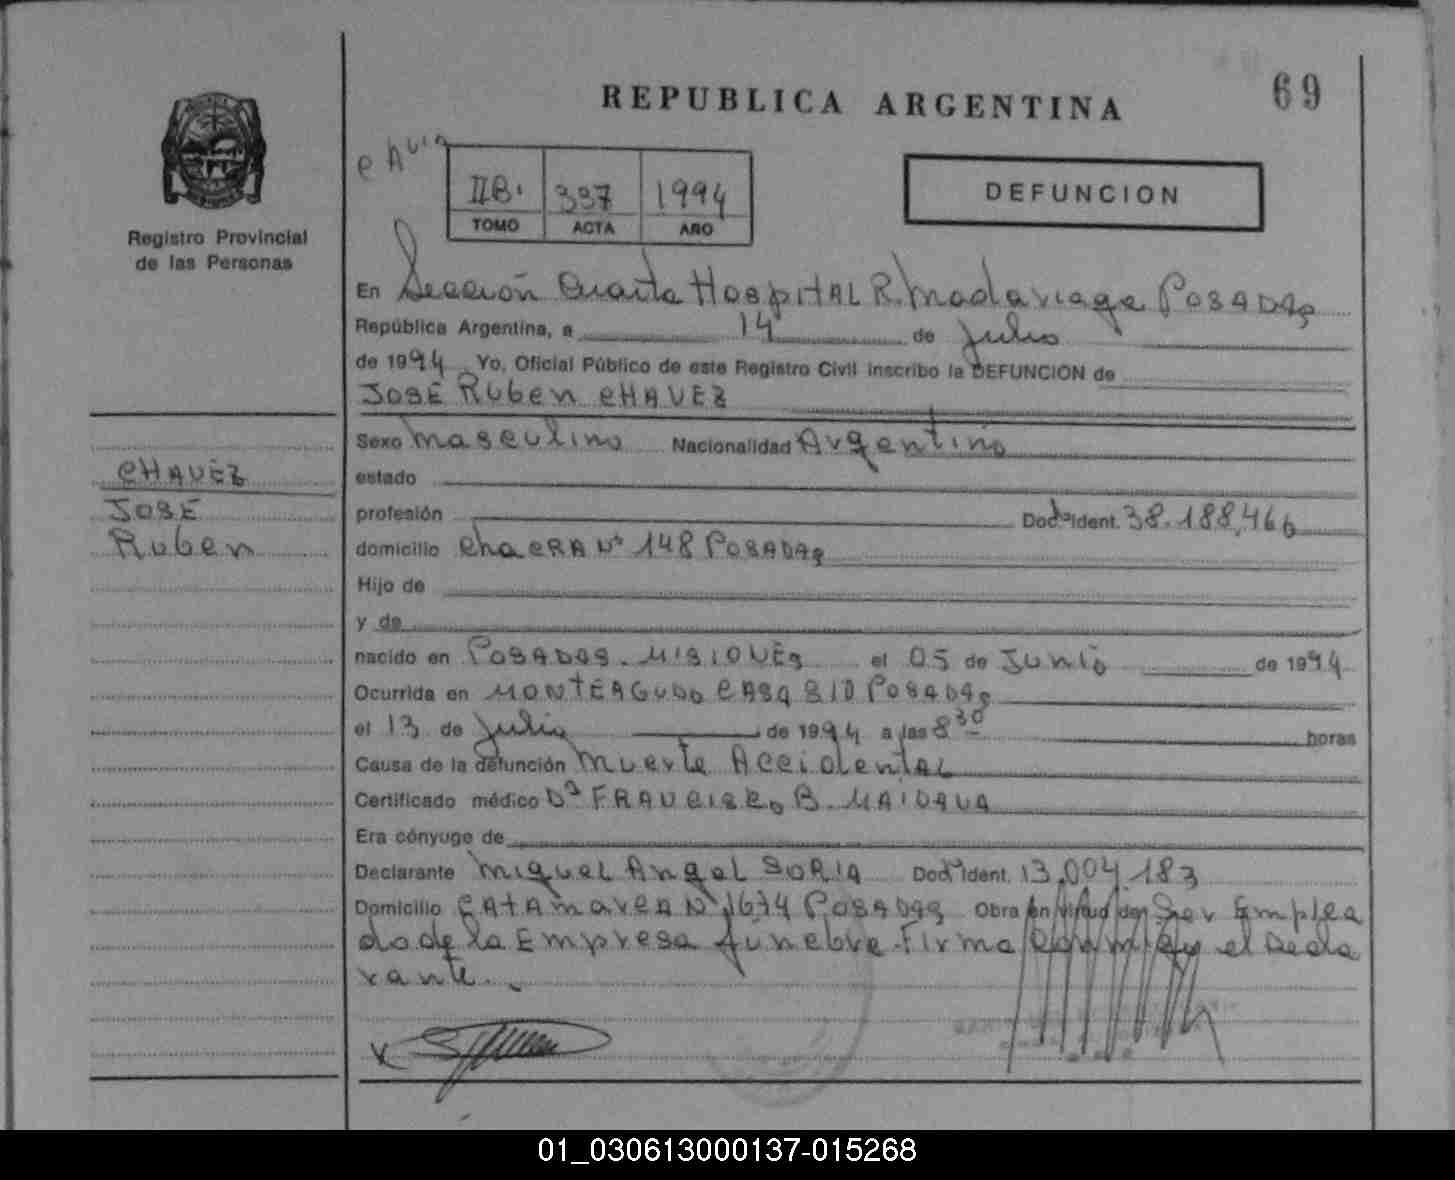 69
REPUBLICA ARGENTINA
IIB. 337 1994
TOMO ACTA AÑO
DEFUNCION
Registro Provincial
de las Personas
En Sección Cuarta HospitAL R. Madariaga POSADAS
República Argentina, a 14 de Julio
de 1994 Yo, Oficial Público de este Registro Civil inscribo la DEFUNCION de
JOSÉ Ruben CHAVEZ
Sexo Masculino Nacionalidad Argentino
estado
profesión Doc. Ident. 38.188.466
domicilio ChacRA Nº 148 POSADAS
Hijo de
y de
nacido en POSADAS. MISIONES el 05 de Junio de 1994
Ocurrida en MONTEAGUDO CASA S/D POSADAS
el 13 de Julio de 1994 a las 8 30 horas
Causa de la defunción Muerte AccidentAL
Certificado médico Dº FRANCISCO B. MAIDANA
Era cónyuge de
Declarante MigueL AngeL SORIA Doc. Ident. 13.004.183
Domicilio CATAmarcA Nº 1674 POSADAS Obra en virtud de Ser Emplea
do de la Empresa funebre. Firma conmigo el Decla
rante.
CHAVEZ
JOSÉ
Ruben
01_030613000137-015268